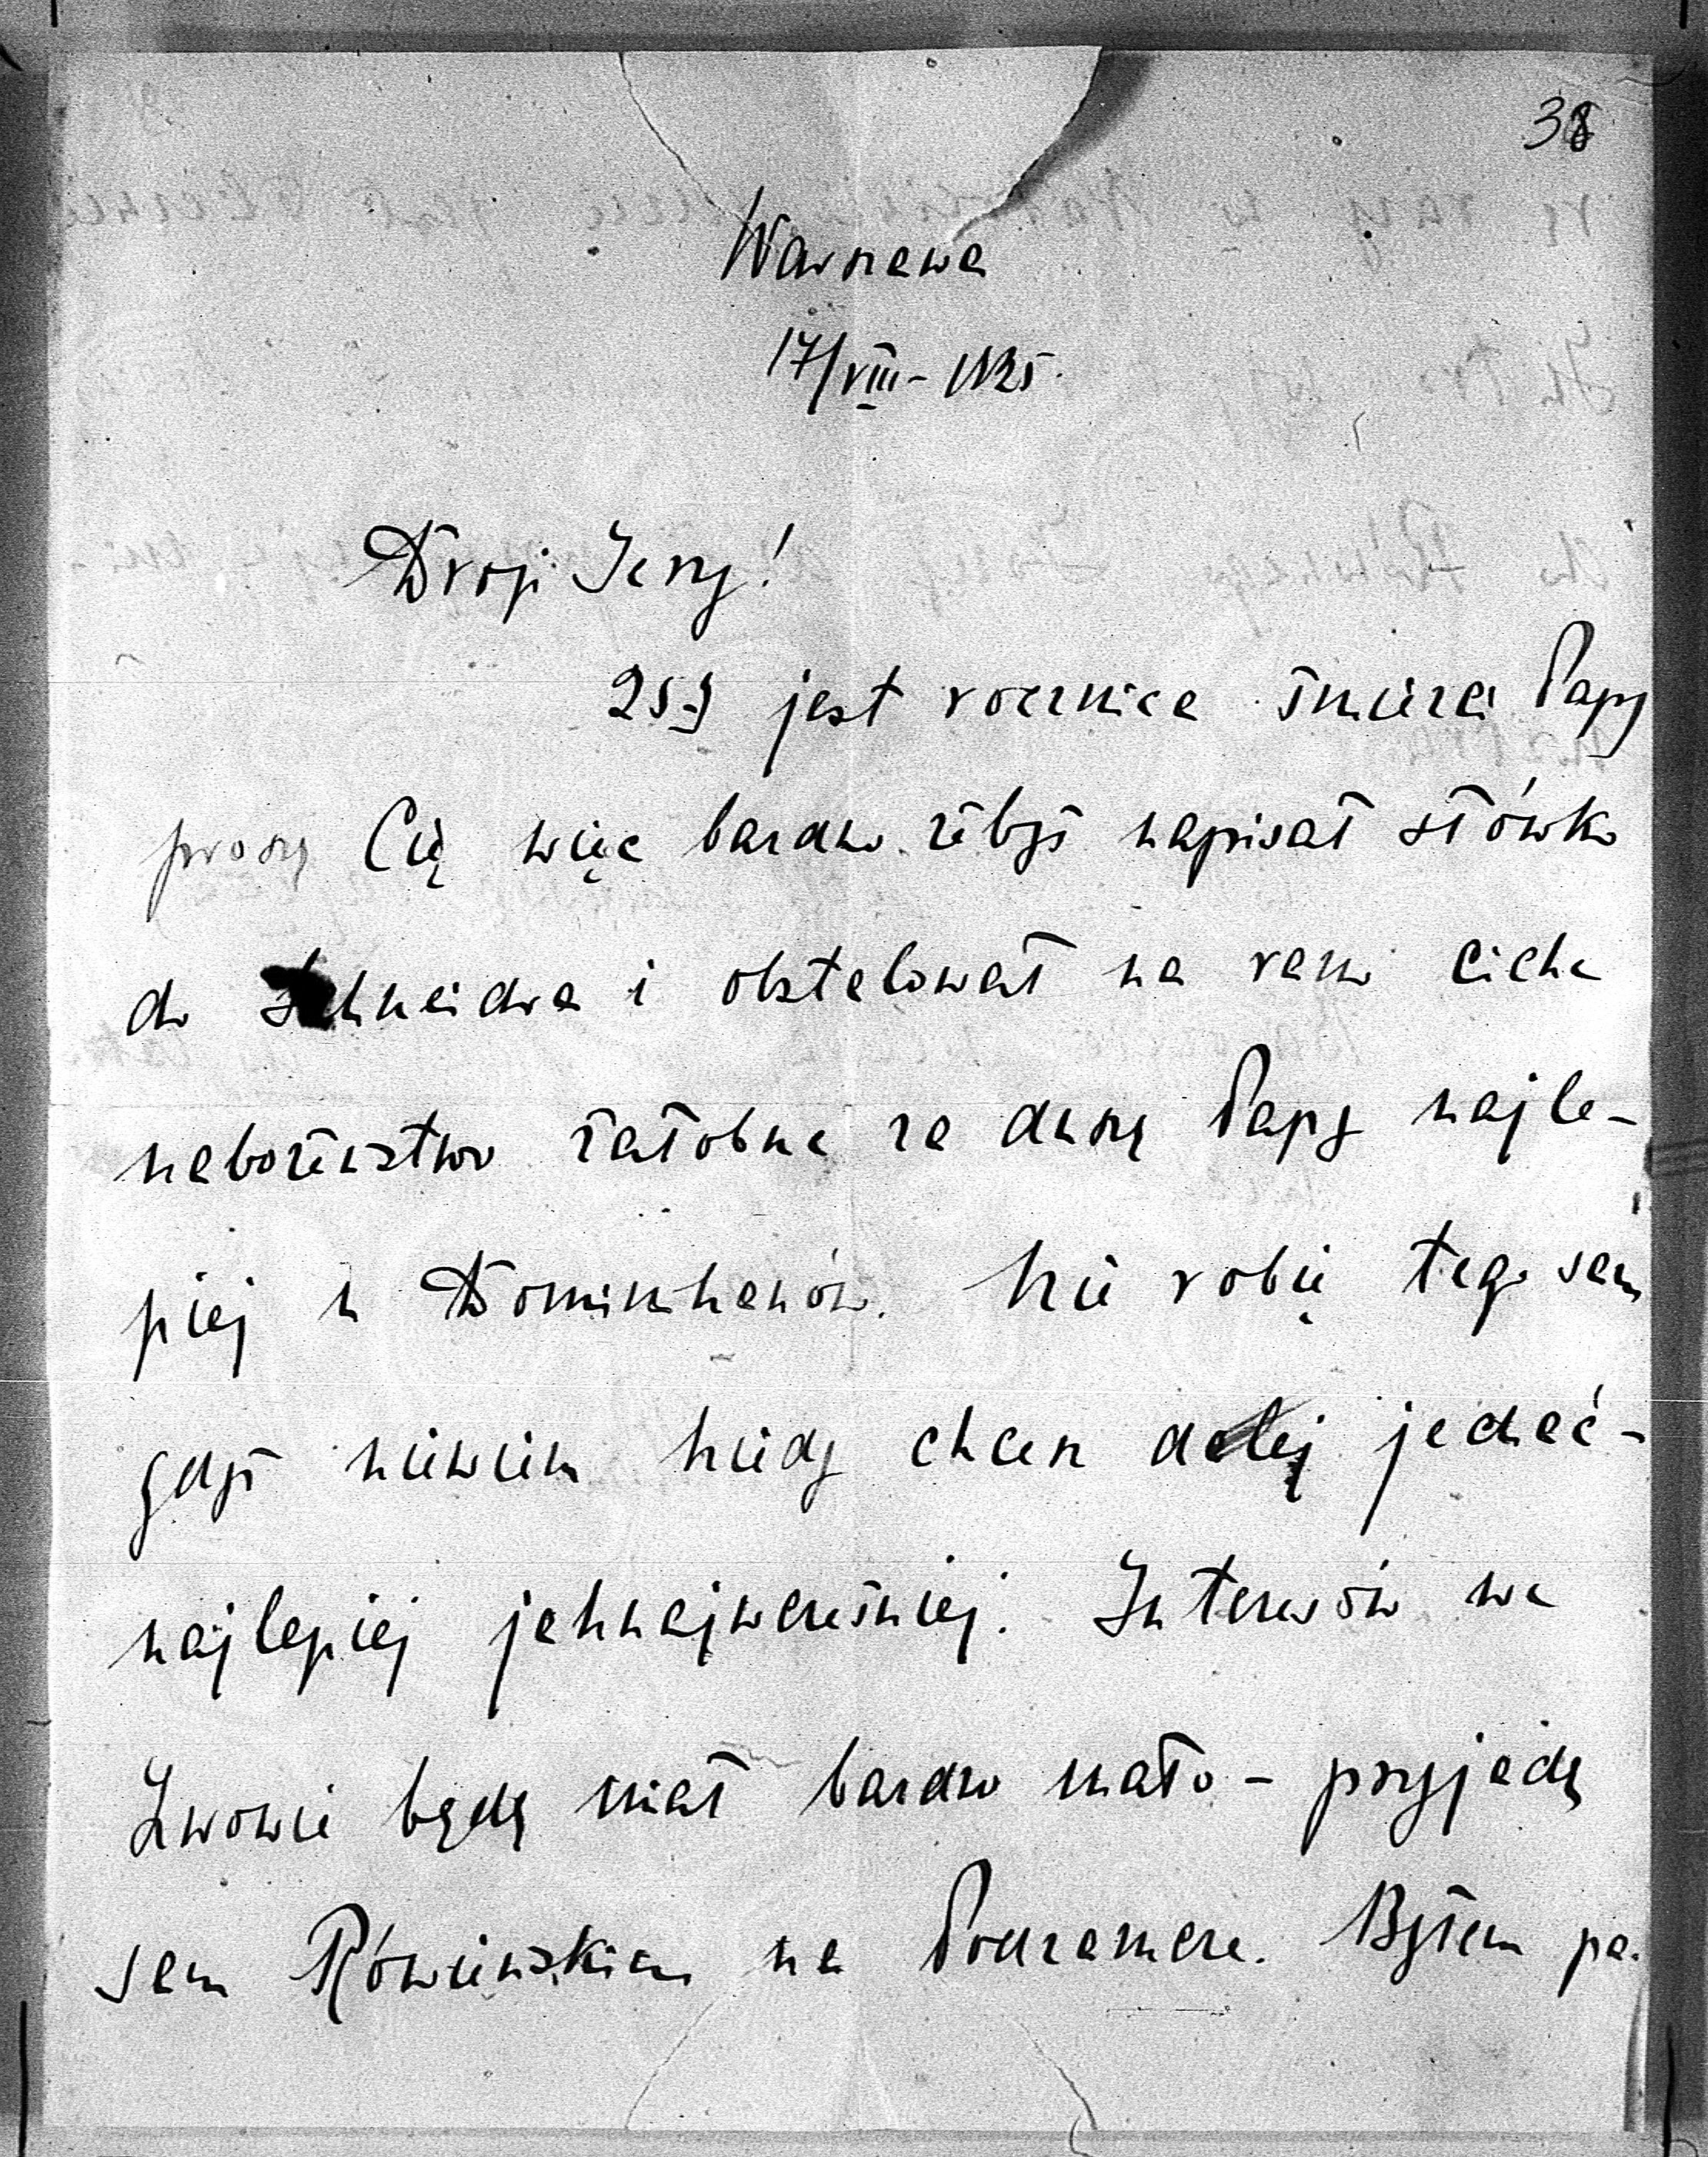 38
Warszawa
17/VIII – 1925.
Drogi Jerzy!
25-g jest rocznica śmierci Papy
proszę Cię więc bardzo żebyś napisał słówko
do Schneidra i obstelował na rano ciche
nabożeństwo żałobne za duszę Papy najle-
piej u Dominikanów. Nie robię tego sam
gdyż niewiem kiedy chcen dalej jechać –
najlepiej jaknajwcześniej. Interesów we
Lwowie będę miał bardzo mało – przyjadę
sam Rówieńskiem na Podzamcze. Byłem pa-